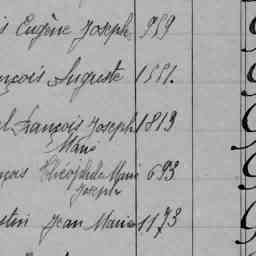 is Eugène Joseph 959
nçois Auguste 1551.
el François Joseph 1819
Marie
nçois Théophile Marie 693
Joseph
stin Jean Marie 1173